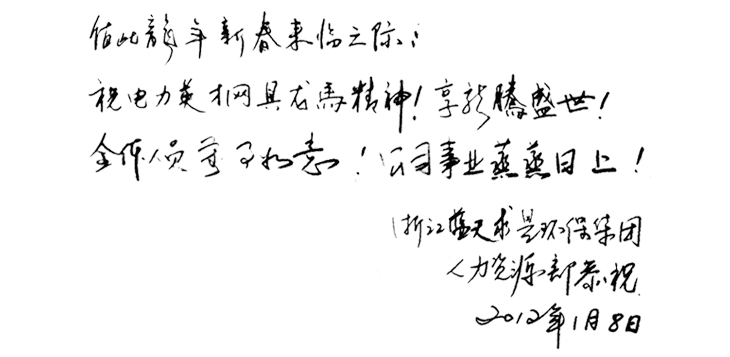 值此龍年新春来临之际：
祝电力英才网具龙馬精神！享龍騰盛世！
全体人员万事如意！公司事业蒸蒸日上！
浙江蓝天求是环保集团
人力资源部恭祝
2012年1月8日